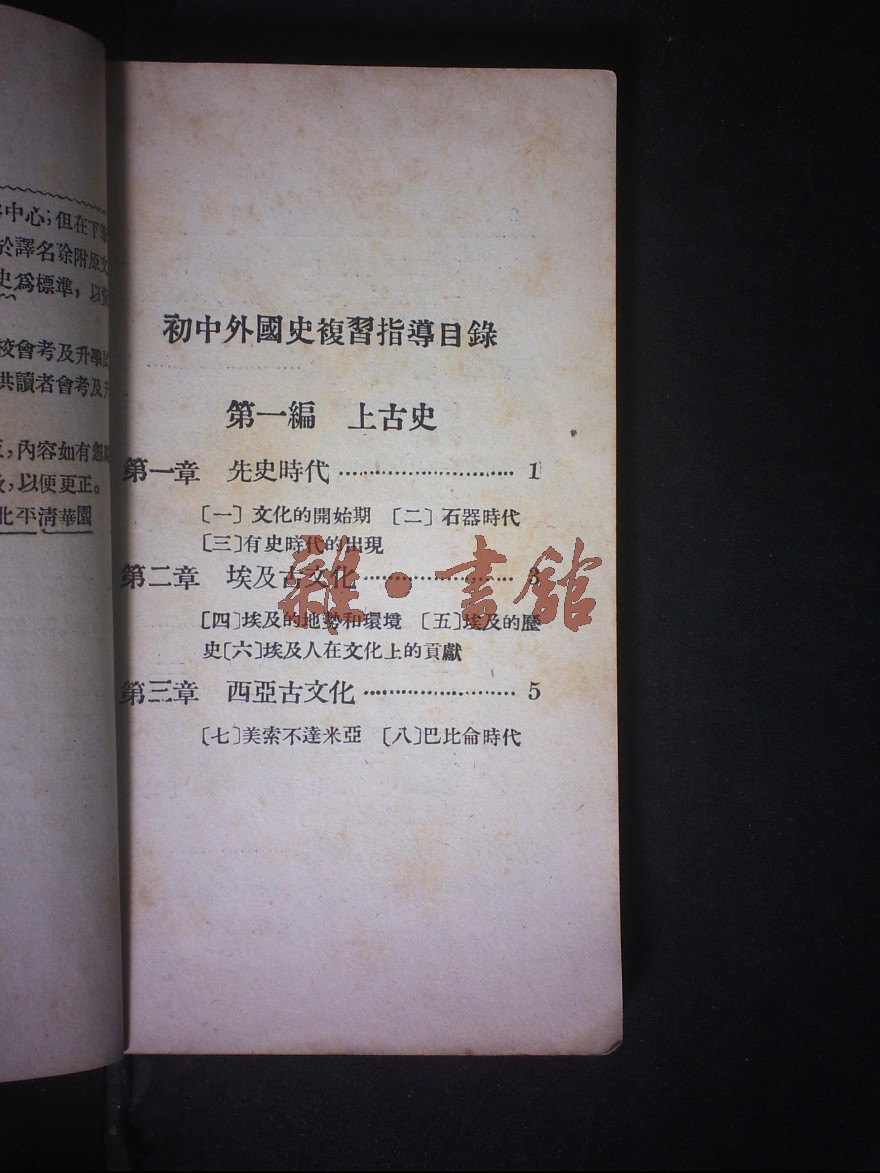 中心；但在下
於譯名除附原文
史爲標準，以
校會考及升學
供讀者會考及升
，內容如有忽
，以便更正。
北平清華園
初中外國史複習指導目錄
第一編　上古史
第一章　先史時代 …………………… 1
〔一〕文化的開始期　〔二〕石器時代
〔三〕有史時代的出現
第二章　埃及古文化 …………………… 3
〔四〕埃及的地勢和環境　〔五〕埃及的歷
史〔六〕埃及人在文化上的貢獻
第三章　西亞古文化 …………………… 5
〔七〕美索不達米亞　〔八〕巴比侖時代
雜·書館